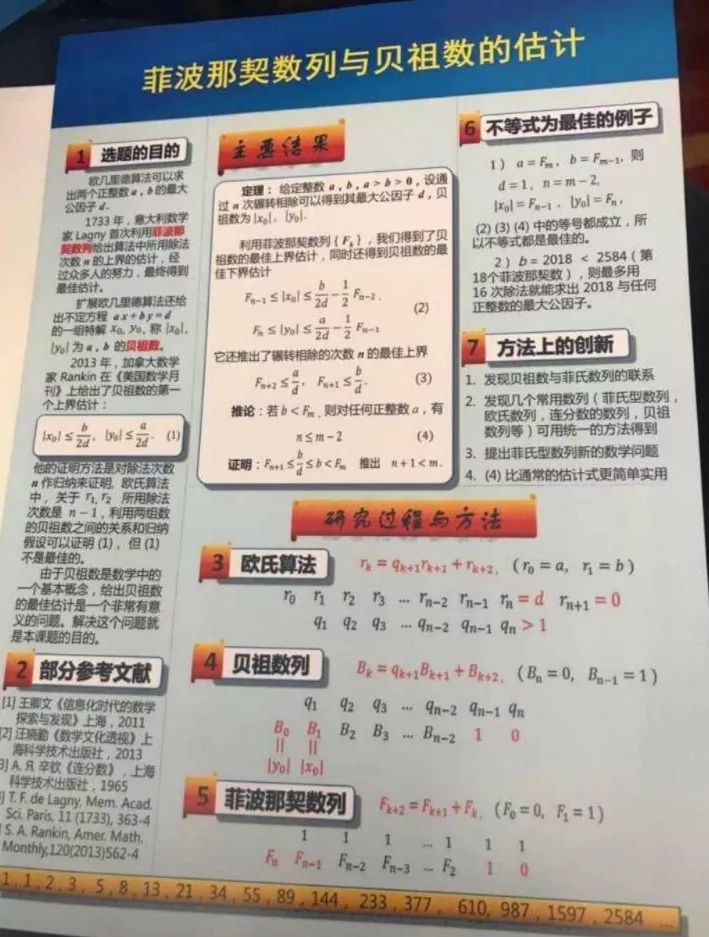 菲波那契数列与贝祖数的估计
1 选题的目的
欧几里德算法可以求
出两个正整数 a,b 的最大
公因子 d.
1733 年,意大利数学
家 Lagny 首次利用菲波那
契数列给出算法中所用除法
次数 n 的上界的估计,经
过众多人的努力,最终得到
最佳估计。
扩展欧几里德算法还给
出不定方程 ax+by=d
的一组特解 x₀, y₀, 称 |x₀|,
|y₀| 为 a,b 的贝祖数。
2013 年,加拿大数学
家 Rankin 在《美国数学月
刊》上给出了贝祖数的第一
个上界估计:
|x₀| ≤ b/2d, |y₀| ≤ a/2d. (1)
他的证明方法是对除法次数
n 作归纳来证明,欧氏算法
中,关于 r₁, r₂ 所用除法
次数是 n−1,利用两组数
的贝祖数之间的关系和归纳
假设可以证明 (1),但 (1)
不是最佳的。
由于贝祖数是数学中的
一个基本概念,给出贝祖数
的最佳估计是一个非常有意
义的问题。解决这个问题就
是本课题的目的。
2 部分参考文献
[1] 王卿文《信息化时代的数学
探索与发现》上海,2011
[2] 汪晓勤《数学文化透视》上
海科学技术出版社,2013
3] A. Я. 辛钦《连分数》,上海
科学技术出版社,1965
] T. F. de Lagny, Mem. Acad.
Sci. Paris, 11 (1733), 363-4
] S. A. Rankin, Amer. Math.
Monthly,120(2013)562-4
主要结果
定理:给定整数 a,b,a > b > 0,设通
过 n 次辗转相除可以得到其最大公因子 d,贝
祖数为 |x₀|, |y₀|.
利用菲波那契数列 {Fₖ},我们得到了贝
祖数的最佳上界估计,同时还得到贝祖数的最
佳下界估计
Fₙ₋₁ ≤ |x₀| ≤ b/2d − 1/2 Fₙ₋₂,
(2)
Fₙ ≤ |y₀| ≤ a/2d − 1/2 Fₙ₋₁
它还推出了辗转相除的次数 n 的最佳上界
Fₙ₊₂ ≤ a/d, Fₙ₊₁ ≤ b/d. (3)
推论:若 b < Fₘ,则对任何正整数 a,有
n ≤ m − 2 (4)
证明:Fₙ₊₁ ≤ b/d ≤ b < Fₘ 推出 n+1 < m.
6 不等式为最佳的例子
1) a = Fₘ, b = Fₘ₋₁, 则
d = 1, n = m − 2,
|x₀| = Fₙ₋₁, |y₀| = Fₙ,
(2) (3) (4) 中的等号都成立,所
以不等式都是最佳的。
2) b = 2018 < 2584(第
18个菲波那契数),则最多用
16 次除法就能求出 2018 与任何
正整数的最大公因子。
7 方法上的创新
1. 发现贝祖数与菲氏数列的联系
2. 发现几个常用数列(菲氏型数列,
欧氏数列,连分数的数列,贝祖
数列等)可用统一的方法得到
3. 提出菲氏型数列新的数学问题
4. (4) 比通常的估计式更简单实用
研究过程与方法
3 欧氏算法 rₖ = qₖ₊₁rₖ₊₁ + rₖ₊₂, (r₀ = a, r₁ = b)
r₀ r₁ r₂ r₃ … rₙ₋₂ rₙ₋₁ rₙ = d rₙ₊₁ = 0
q₁ q₂ q₃ … qₙ₋₂ qₙ₋₁ qₙ > 1
4 贝祖数列 Bₖ = qₖ₊₁Bₖ₊₁ + Bₖ₊₂, (Bₙ = 0, Bₙ₋₁ = 1)
q₁ q₂ q₃ … qₙ₋₂ qₙ₋₁ qₙ
B₀ B₁ B₂ B₃ … Bₙ₋₂ 1 0
|| ||
|y₀| |x₀|
5 菲波那契数列 Fₖ₊₂ = Fₖ₊₁ + Fₖ, (F₀ = 0, F₁ = 1)
1 1 1 … 1 1 1
Fₙ Fₙ₋₁ Fₙ₋₂ Fₙ₋₃ … F₂ 1 0
1, 1, 2, 3, 5, 8, 13, 21, 34, 55, 89, 144, 233, 377, 610, 987, 1597, 2584 …